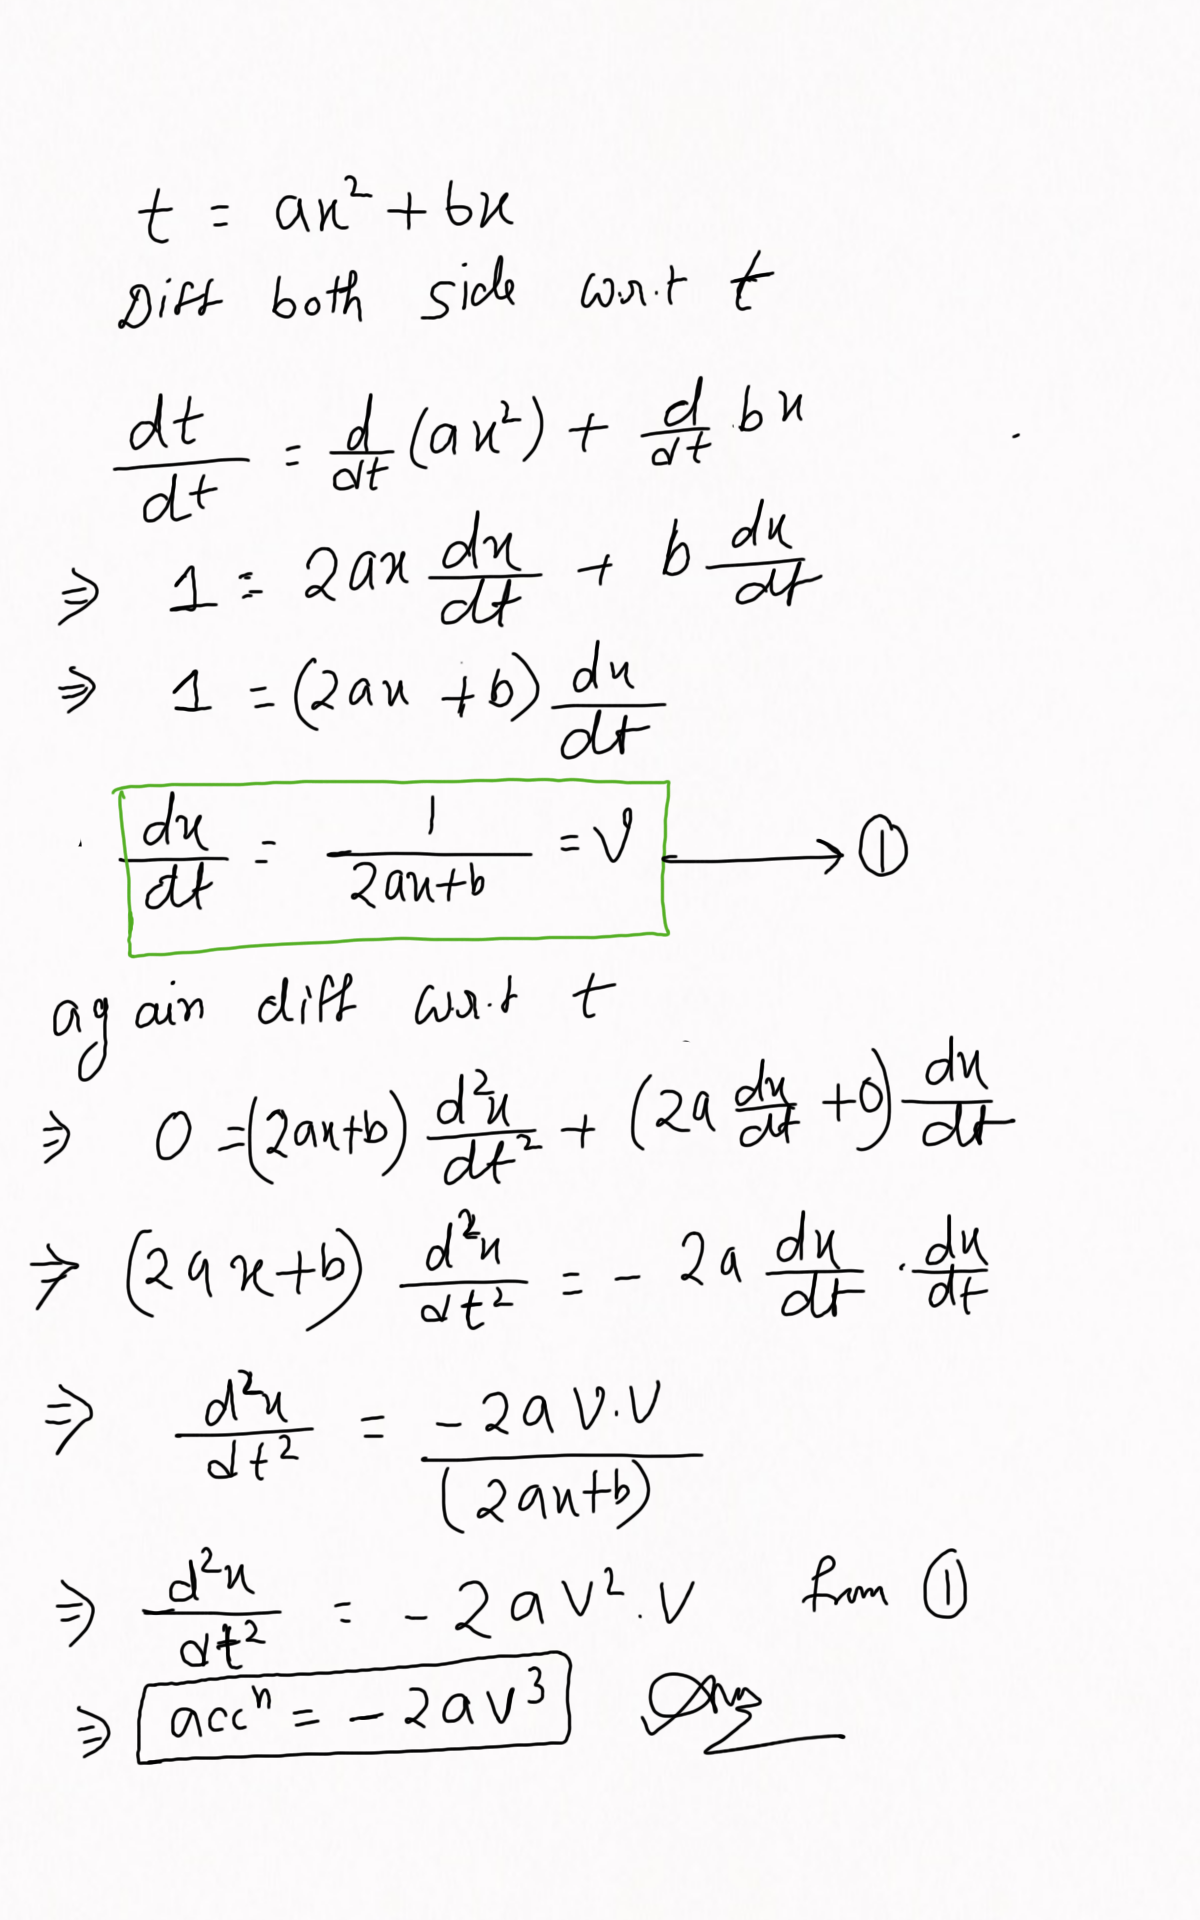 t = ax² + bx
Diff both side w.r.t t
dt/dt = d/dt (ax²) + d/dt bx
⇒ 1 = 2ax dx/dt + b dx/dt
⇒ 1 = (2ax + b) dx/dt
dx/dt = 1/(2ax+b) = v → ①
again diff w.r.t t
⇒ 0 = (2ax+b) d²x/dt² + (2a dx/dt + 0) dx/dt
⇒ (2ax+b) d²x/dt² = - 2a dx/dt · dx/dt
⇒ d²x/dt² = -2a v.v/(2ax+b)
⇒ d²x/dt² = - 2a v² . v from ①
⇒ accⁿ = - 2av³ Ans